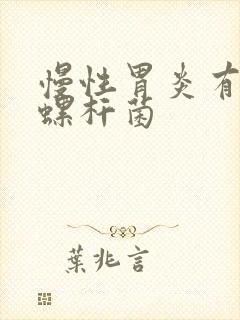 慢性胃炎有
螺杆菌
葉兆言